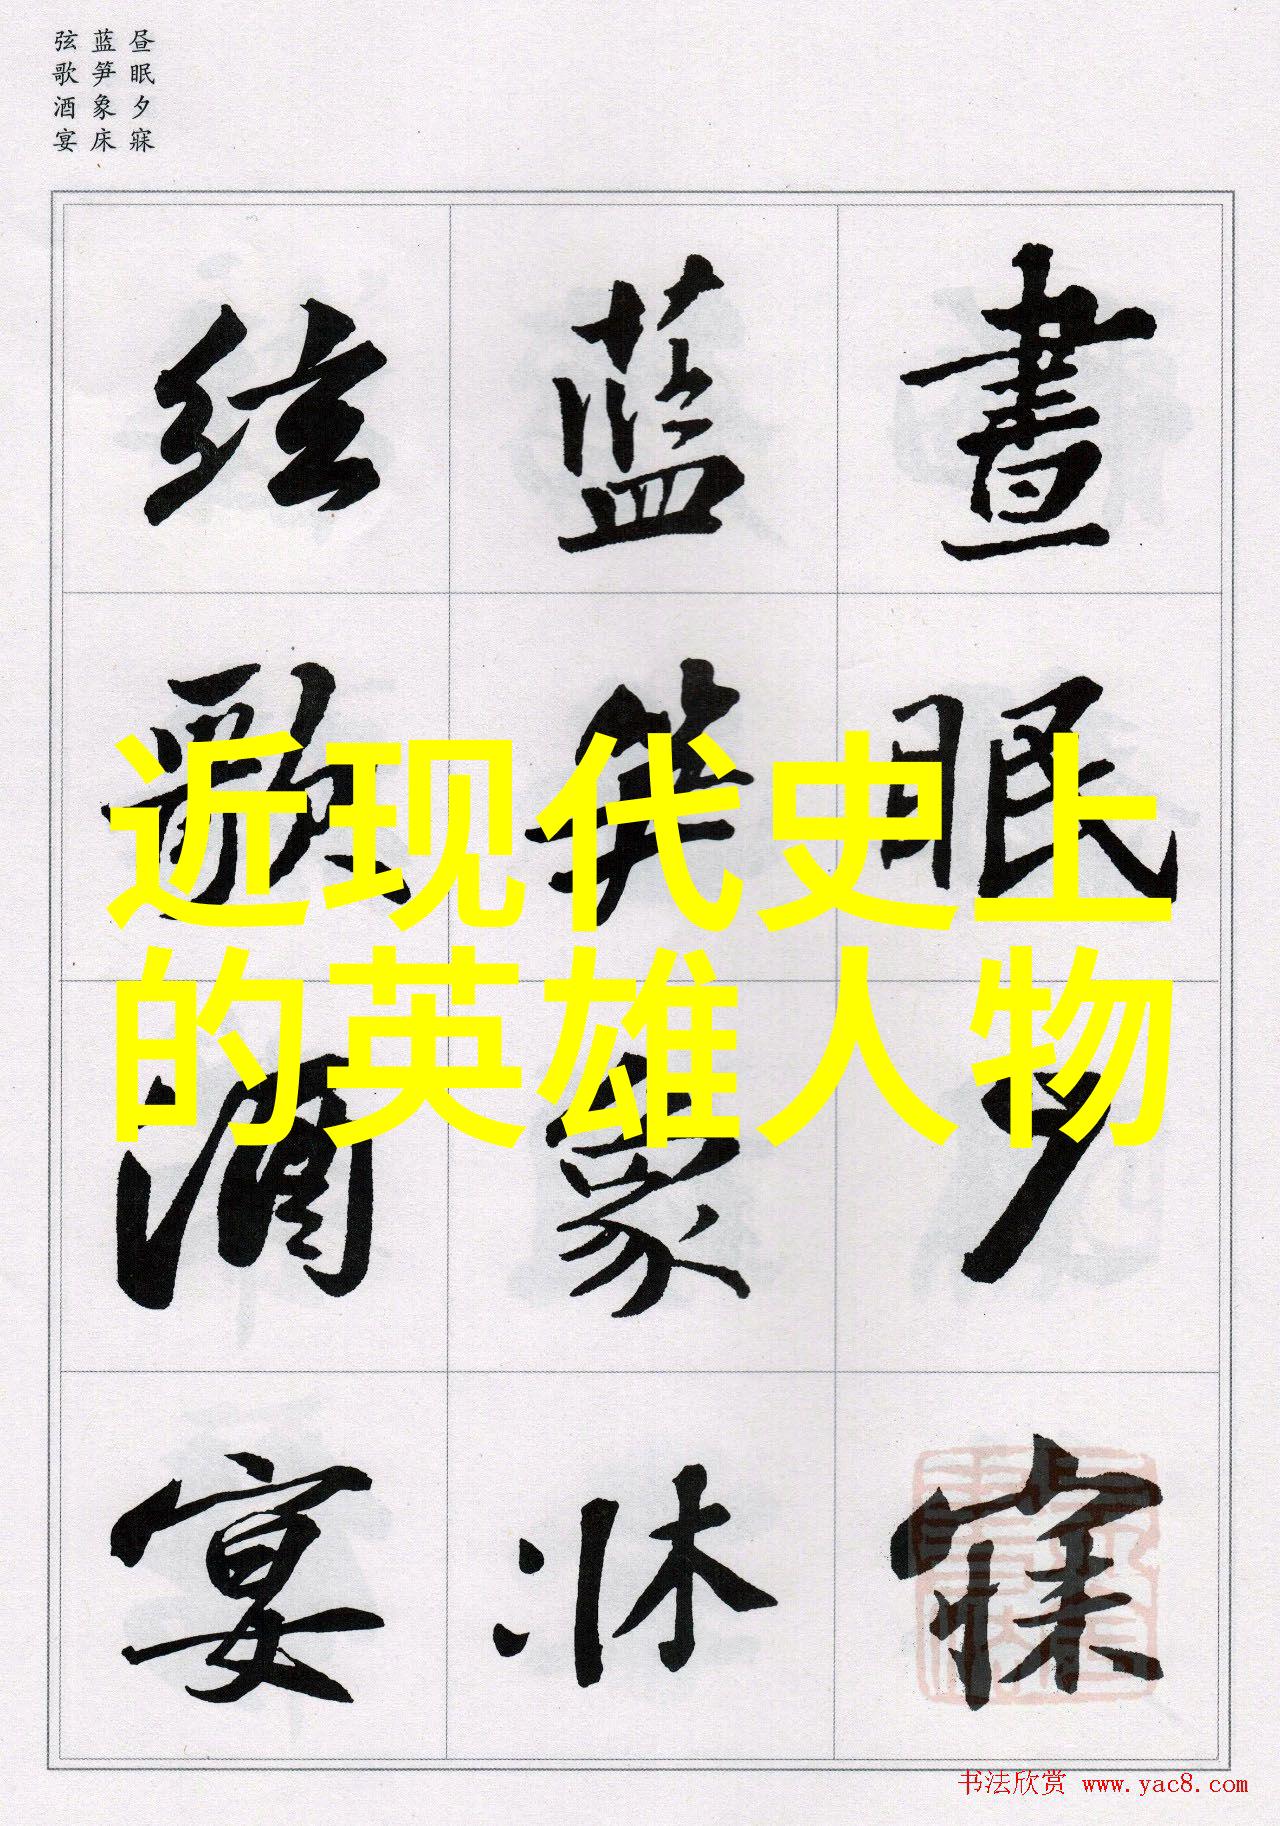 昼眠夕寐
蓝笋象床
弦歌酒宴
晝眠夕寐
蓝笋象牀
弦歌酒宴
近现代史上
的英雄人物
书法欣赏 www.yac8.com